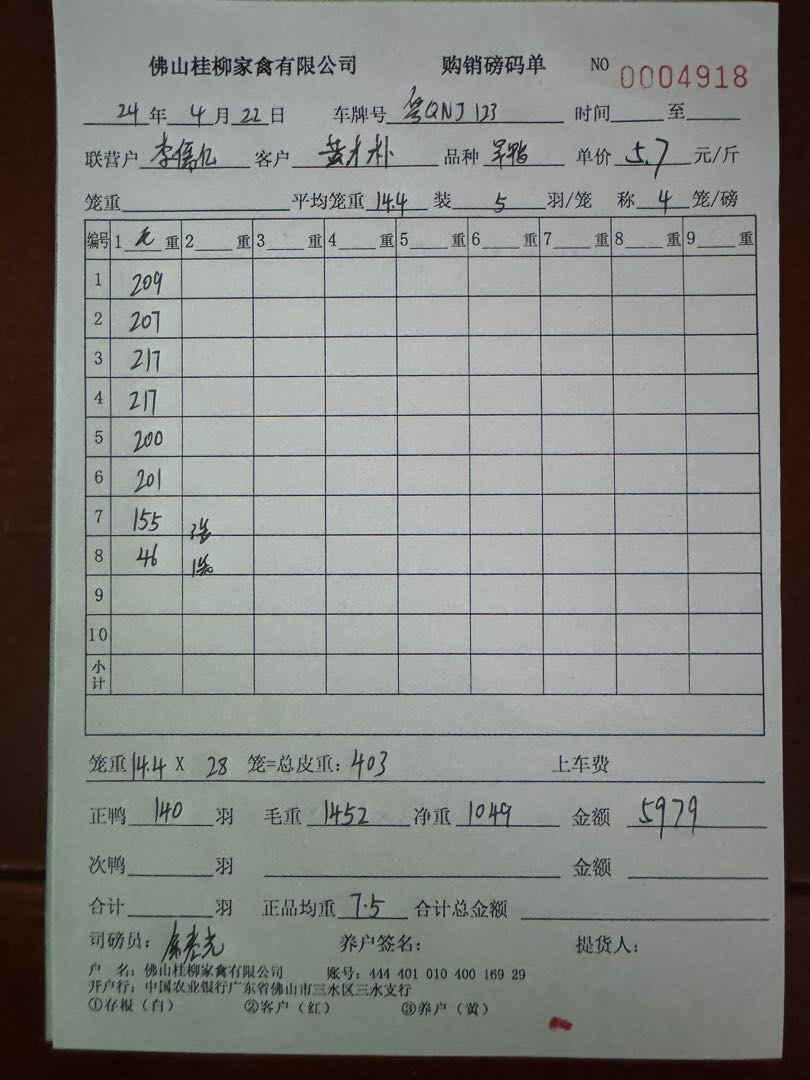 佛山桂柳家禽有限公司 购销磅码单 NO 0004918
24 年 4 月 22 日 车牌号 粤QNJ123 时间 至
联营户 李儒亿 客户 黄木朴 品种 旱鸭 单价 5.7 元/斤
笼重 平均笼重 14.4 装 5 羽/笼 称 4 笼/磅
编号 1 毛 重 2 重 3 重 4 重 5 重 6 重 7 重 8 重 9 重
1 209
2 207
3 217
4 217
5 200
6 201
7 155 3笼
8 46 1笼
9
10
小计
笼重 14.4 X 28 笼=总皮重: 403 上车费
正鸭 140 羽 毛重 1452 净重 1049 金额 5979
次鸭 羽 金额
合计 羽 正品均重 7.5 合计总金额
司磅员: 养户签名: 提货人:
户 名: 佛山桂柳家禽有限公司 账号: 444 401 010 400 169 29
开户行: 中国农业银行广东省佛山市三水区三水支行
①存根(白) ②客户(红) ③养户(黄)